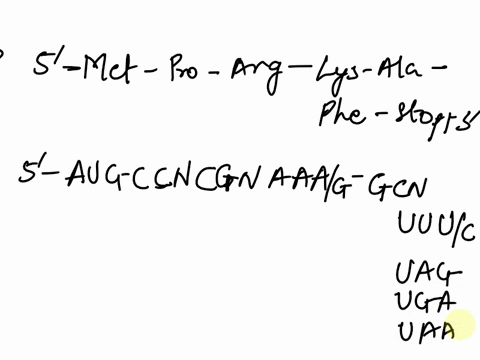 5'-Met - Pro - Arg - Lys - Ala -
Phe - Stop 3'
5'- AUG - CCN CGN AAA/G - GCN
UUU/C
UAG
UGA
UAA